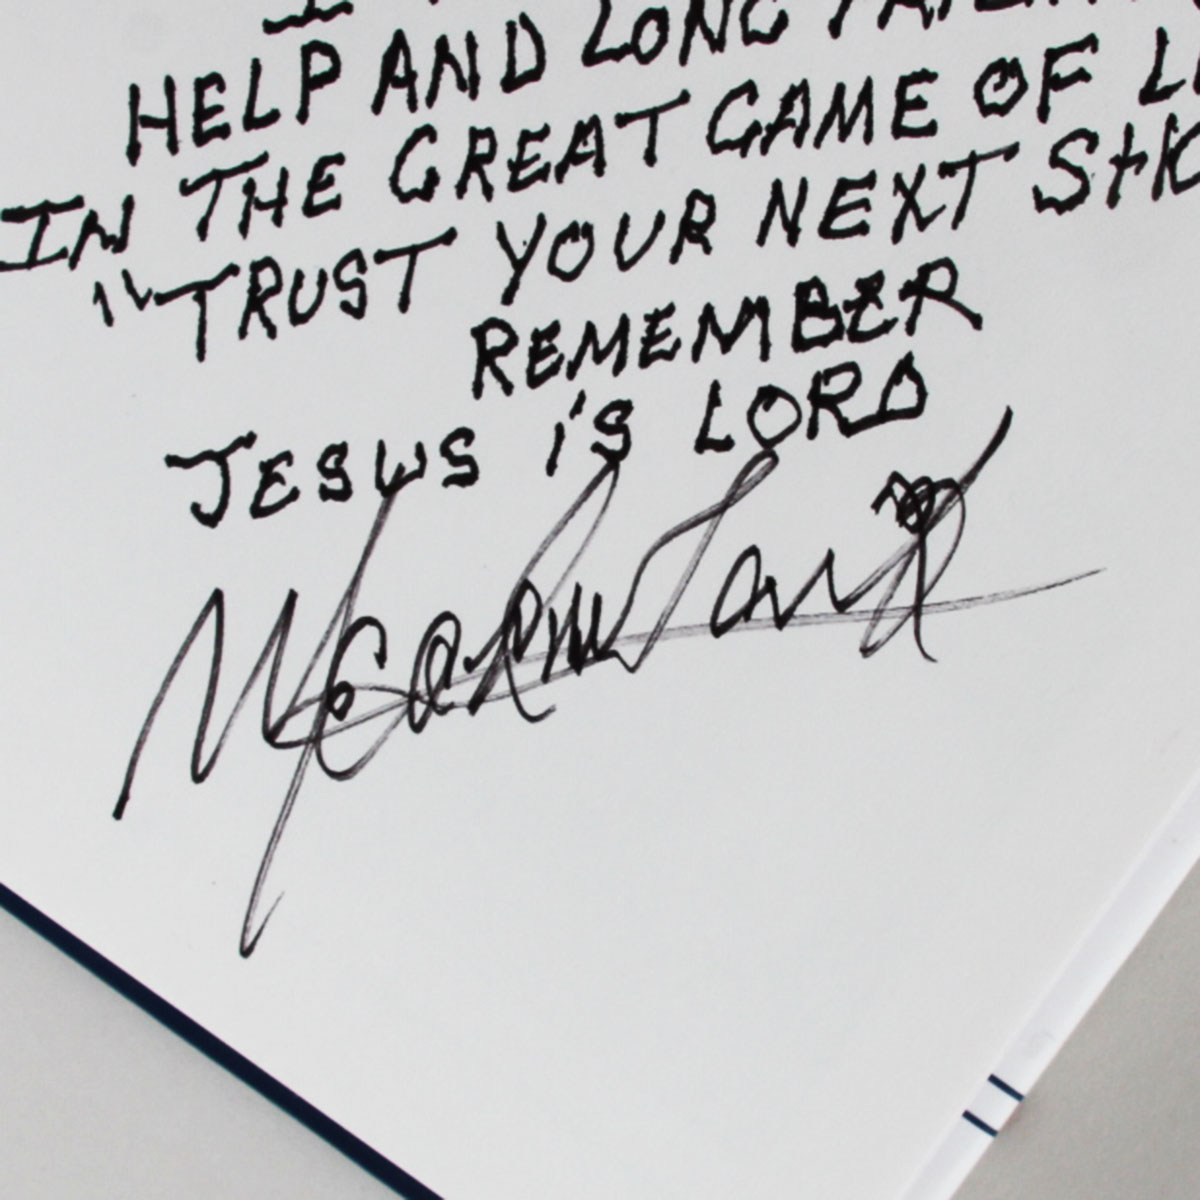 HELP AND LONG
IN THE GREAT GAME OF
"TRUST YOUR NEXT
REMEMBER
JESUS iS LORD